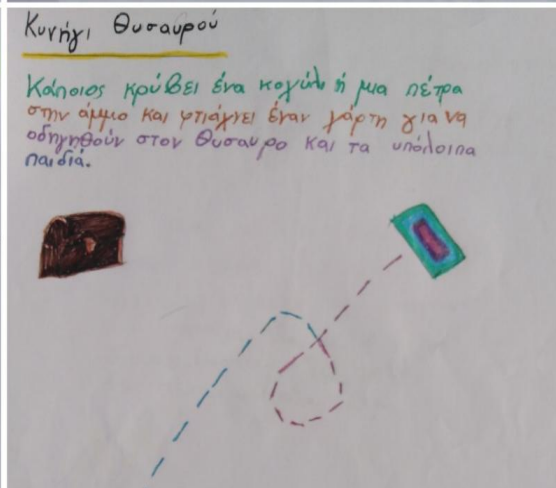 Κυνήγι Θυσαυρού
Κάποιος κρύβει ένα κοχύλι ή μια πέτρα
στην άμμο και φτιάχνει έναν χάρτη για να
οδηγηθούν στον Θυσαυρο και τα υπόλοιπα
παιδιά.